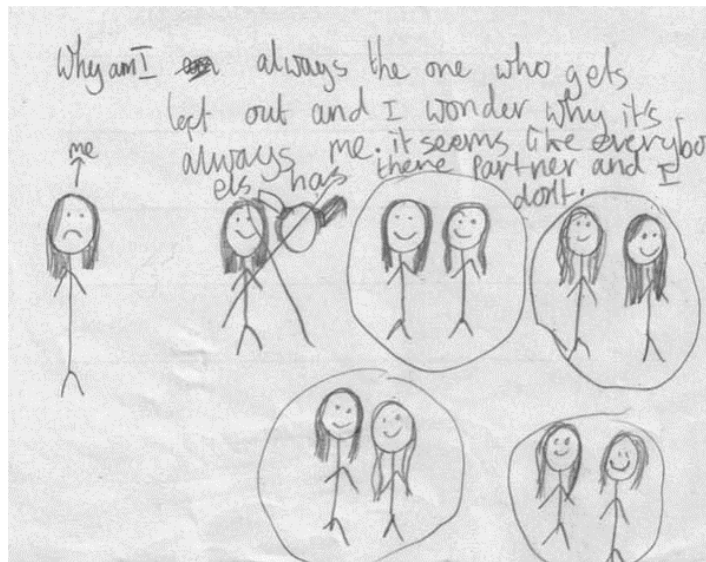 Why am I always the one who gets
left out and I wonder why it's
always me. it seems like everybo
els has there partner and I
dont.
me